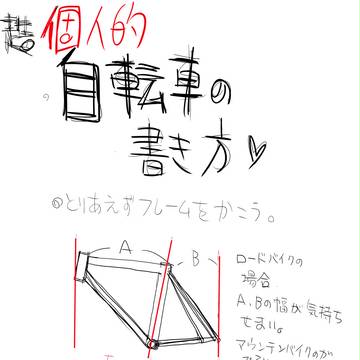 超個人的
自転車の
書き方♡
⓪とりあえずフレームをかこう。
A
B
ロードバイクの
場合
A,Bの幅が気持ち
せまい。
マウンテンバイクのが